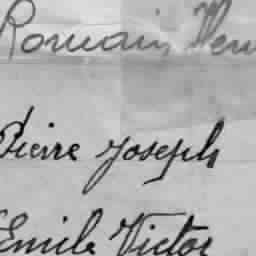 Romain
Pierre Joseph
Emile Victor